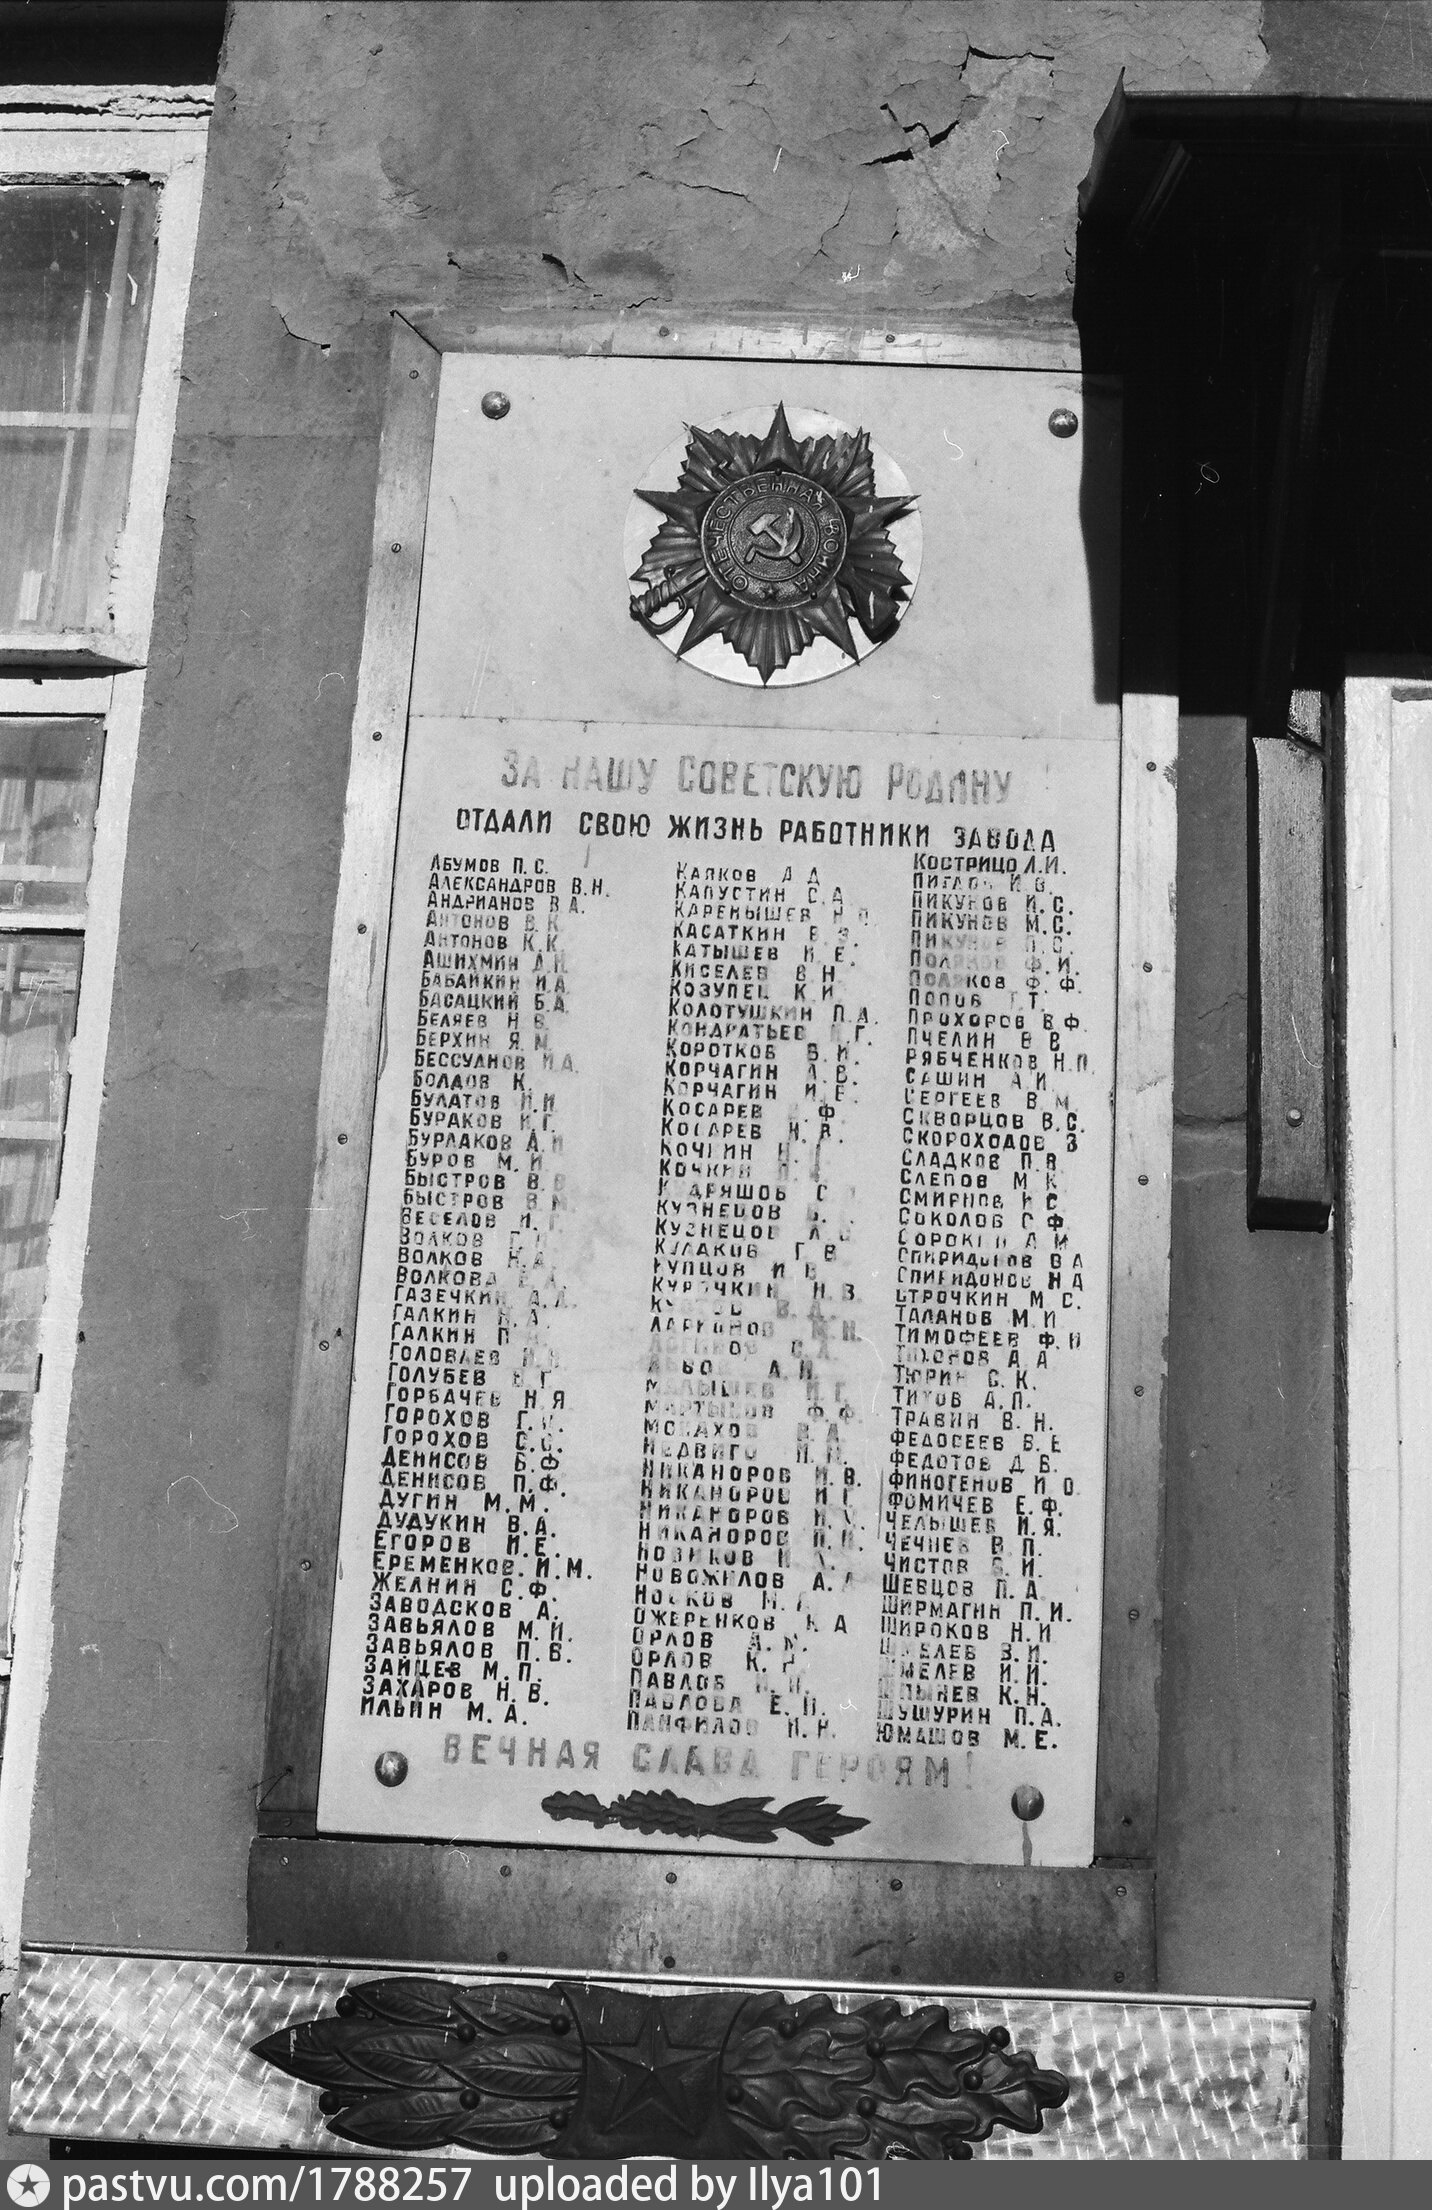 ОТЕЧЕСТВЕННАЯ ВОЙНА
ЗА НАШУ СОВЕТСКУЮ РОДИНУ
ОТДАЛИ СВОЮ ЖИЗНЬ РАБОТНИКИ ЗАВОДА
АБУМОВ П.С.
АЛЕКСАНДРОВ В.Н.
АНДРИАНОВ В.А.
АНТОНОВ В.К.
АНТОНОВ К.К.
АШИХМИН А.Н.
БАБАЙКИН И.А.
БАСАЦКИЙ Б.А.
БЕЛЯЕВ Н В.
БЕРХИН Я. М.
БЕССУДНОВ И.А.
БОЛДОВ К.
БУЛАТОВ И.И
БУРАКОВ И.Г.
БУРЛАКОВ А.И
БУРОВ М.И.
БЫСТРОВ В.В
БЫСТРОВ В М.
ВЕСЕЛОВ И. Г.
ВОЛКОВ
ВОЛКОВ Н.А.
ВОЛКОВА Е.А.
ГАЗЕЧКИН А.А.
ГАЛКИН Н.А.
ГАЛКИН П
ГОЛОВЛЕВ
ГОЛУБЕВ В Г
ГОРБАЧЕВ Н.Я
ГОРОХОВ Г.
ГОРОХОВ С.С.
ДЕНИСОВ Б.Ф
ДЕНИСОВ П.Ф.
ДУГИН М.М.
ДУДУКИН В.А.
ЕГОРОВ И.Е.
ЕРЕМЕНКОВ.И.М.
ЖЕЛНИН С.Ф.
ЗАВОДСКОВ А.
ЗАВЬЯЛОВ М.И.
ЗАВЬЯЛОВ П.В.
ЗАЙЦЕВ М.П.
ЗАХАРОВ Н.В.
ИЛЬИН М.А.
КАЛКОВ А Д
КАПУСТИН С.А
КАРЕНЫШЕВ Н П.
КАСАТКИН В.З.
КАТЫШЕВ И Е.
КИСЕЛЕВ В Н
КОЗУПЕЦ К И
КОЛОТУШКИН П.А.
КОНДРАТЬЕВ Г.
КОРОТКОВ В.И.
КОРЧАГИН А.В.
КОРЧАГИН И.Е.
КОСАРЕВ Ф.
КОСАРЕВ Н.В.
КОЧКИН
КОЧКИН
КУДРЯШОВ С
КУЗНЕЦОВ
КУЗНЕЦОВ А
КУЛАКОВ Г В
КУПЦОВ И В
КУРОЧКИН Н.В.
В.А.
ЛАРИОНОВ М.Н.
С.А.
ЛЬВОВ А.И.
МАЛЫШЕВ И.Г.
МАРТЫНОВ Ф.Ф.
МОНАХОВ В.А.
НЕДВИГО
НИКАНОРОВ И.В.
НИКАНОРОВ И Г
НИКАНОРОВ И.
НИКАНОРОВ П.И.
НОВИКОВ
НОВОЖИЛОВ А.А
НОСКОВ М.
ОЖЕРЕНКОВ А
ОРЛОВ А.М.
ОРЛОВ К.
ПАВЛОВ И.И.
ПАВЛОВА Е.П.
ПАНФИЛОВ И.Н.
КОСТРИЦО Л.И.
И.В.
ПИКУНОВ И.С.
ПИКУНОВ М.С.
ПИКУНОВ П.С.
ПОЛЯКОВ Ф.И.
ПОЛЯКОВ Ф.Ф.
ПОПОВ Г.Т.
ПРОХОРОВ В.Ф.
ПЧЕЛИН В В
РЯБЧЕНКОВ Н.П.
САШИН А.И.
СЕРГЕЕВ В М.
СКВОРЦОВ В.С.
СКОРОХОДОВ З
СЛАДКОВ П.В.
СЛЕПОВ М К
СМИРНОВ С.
СОКОЛОВ Ф
СОРОКИН А М
СПИРИДОНОВ В А
СПИРИДОНОВ Н А
СТРОЧКИН М С.
ТАЛАНОВ М.И
ТИМОФЕЕВ Ф.И
ТИХОНОВ А А
ТЮРИН С.К.
ТИТОВ А.П.
ТРАВИН В.Н.
ФЕДОСЕЕВ В.Е
ФЕДОТОВ Д В.
ФИНОГЕНОВ И О.
ФОМИЧЕВ Е.Ф.
ЧЕЛЫШЕВ И.Я.
ЧЕЧНЕВ В.П.
ЧИСТОВ В.И.
ШЕВЦОВ П.А
ШИРМАГИН П.И.
ШИРОКОВ Н.И
ШМЕЛЕВ В.И.
ШМЕЛЕВ И.И.
ШПЫНЕВ К.Н.
ШУШУРИН П.А.
ЮМАШОВ М.Е.
ВЕЧНАЯ СЛАВА ГЕРОЯМ!
pastvu.com/1788257 uploaded by Ilya101